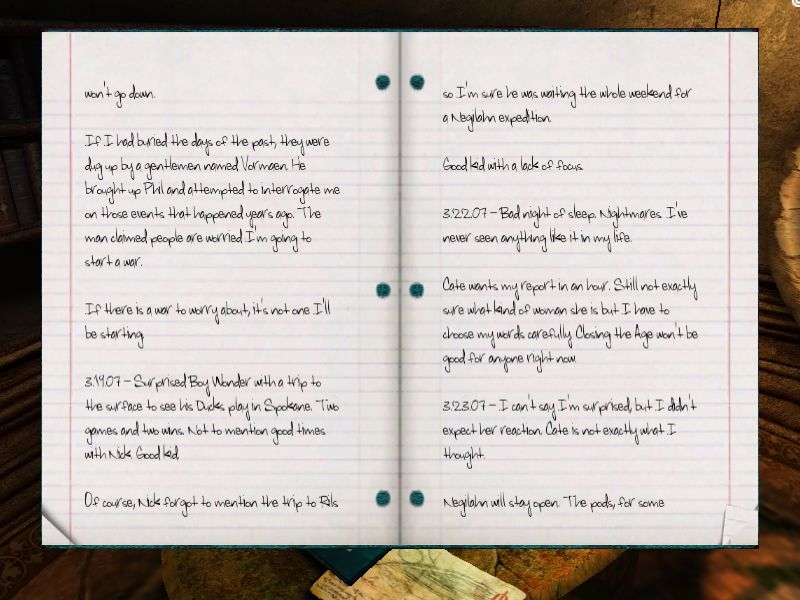 won't go down.
If I had buried the days of the past, they were
dug up by a gentlemen named Vormaen. He
brought up Phil and attempted to interrogate me
on those events that happened years ago. The
man claimed people are worried I'm going to
start a war.
If there is a war to worry about, it's not one I'll
be starting.
3.19.07 - Surprised Boy Wonder with a trip to
the surface to see his Ducks play in Spokane. Two
games and two wins. Not to mention good times
with Nick. Good kid.
Of course, Nick forgot to mention the trip to Rils
so I'm sure he was waiting the whole weekend for
a Negilahn expedition.
Good kid with a lack of focus.
3.22.07 - Bad night of sleep. Nightmares. I've
never seen anything like it in my life.
Cate wants my report in an hour. Still not exactly
sure what kind of woman she is but I have to
choose my words carefully. Closing the Age won't be
good for anyone right now.
3.23.07 - I can't say I'm surprised, but I didn't
expect her reaction. Cate is not exactly what I
thought.
Negilahn will stay open. The pods, for some